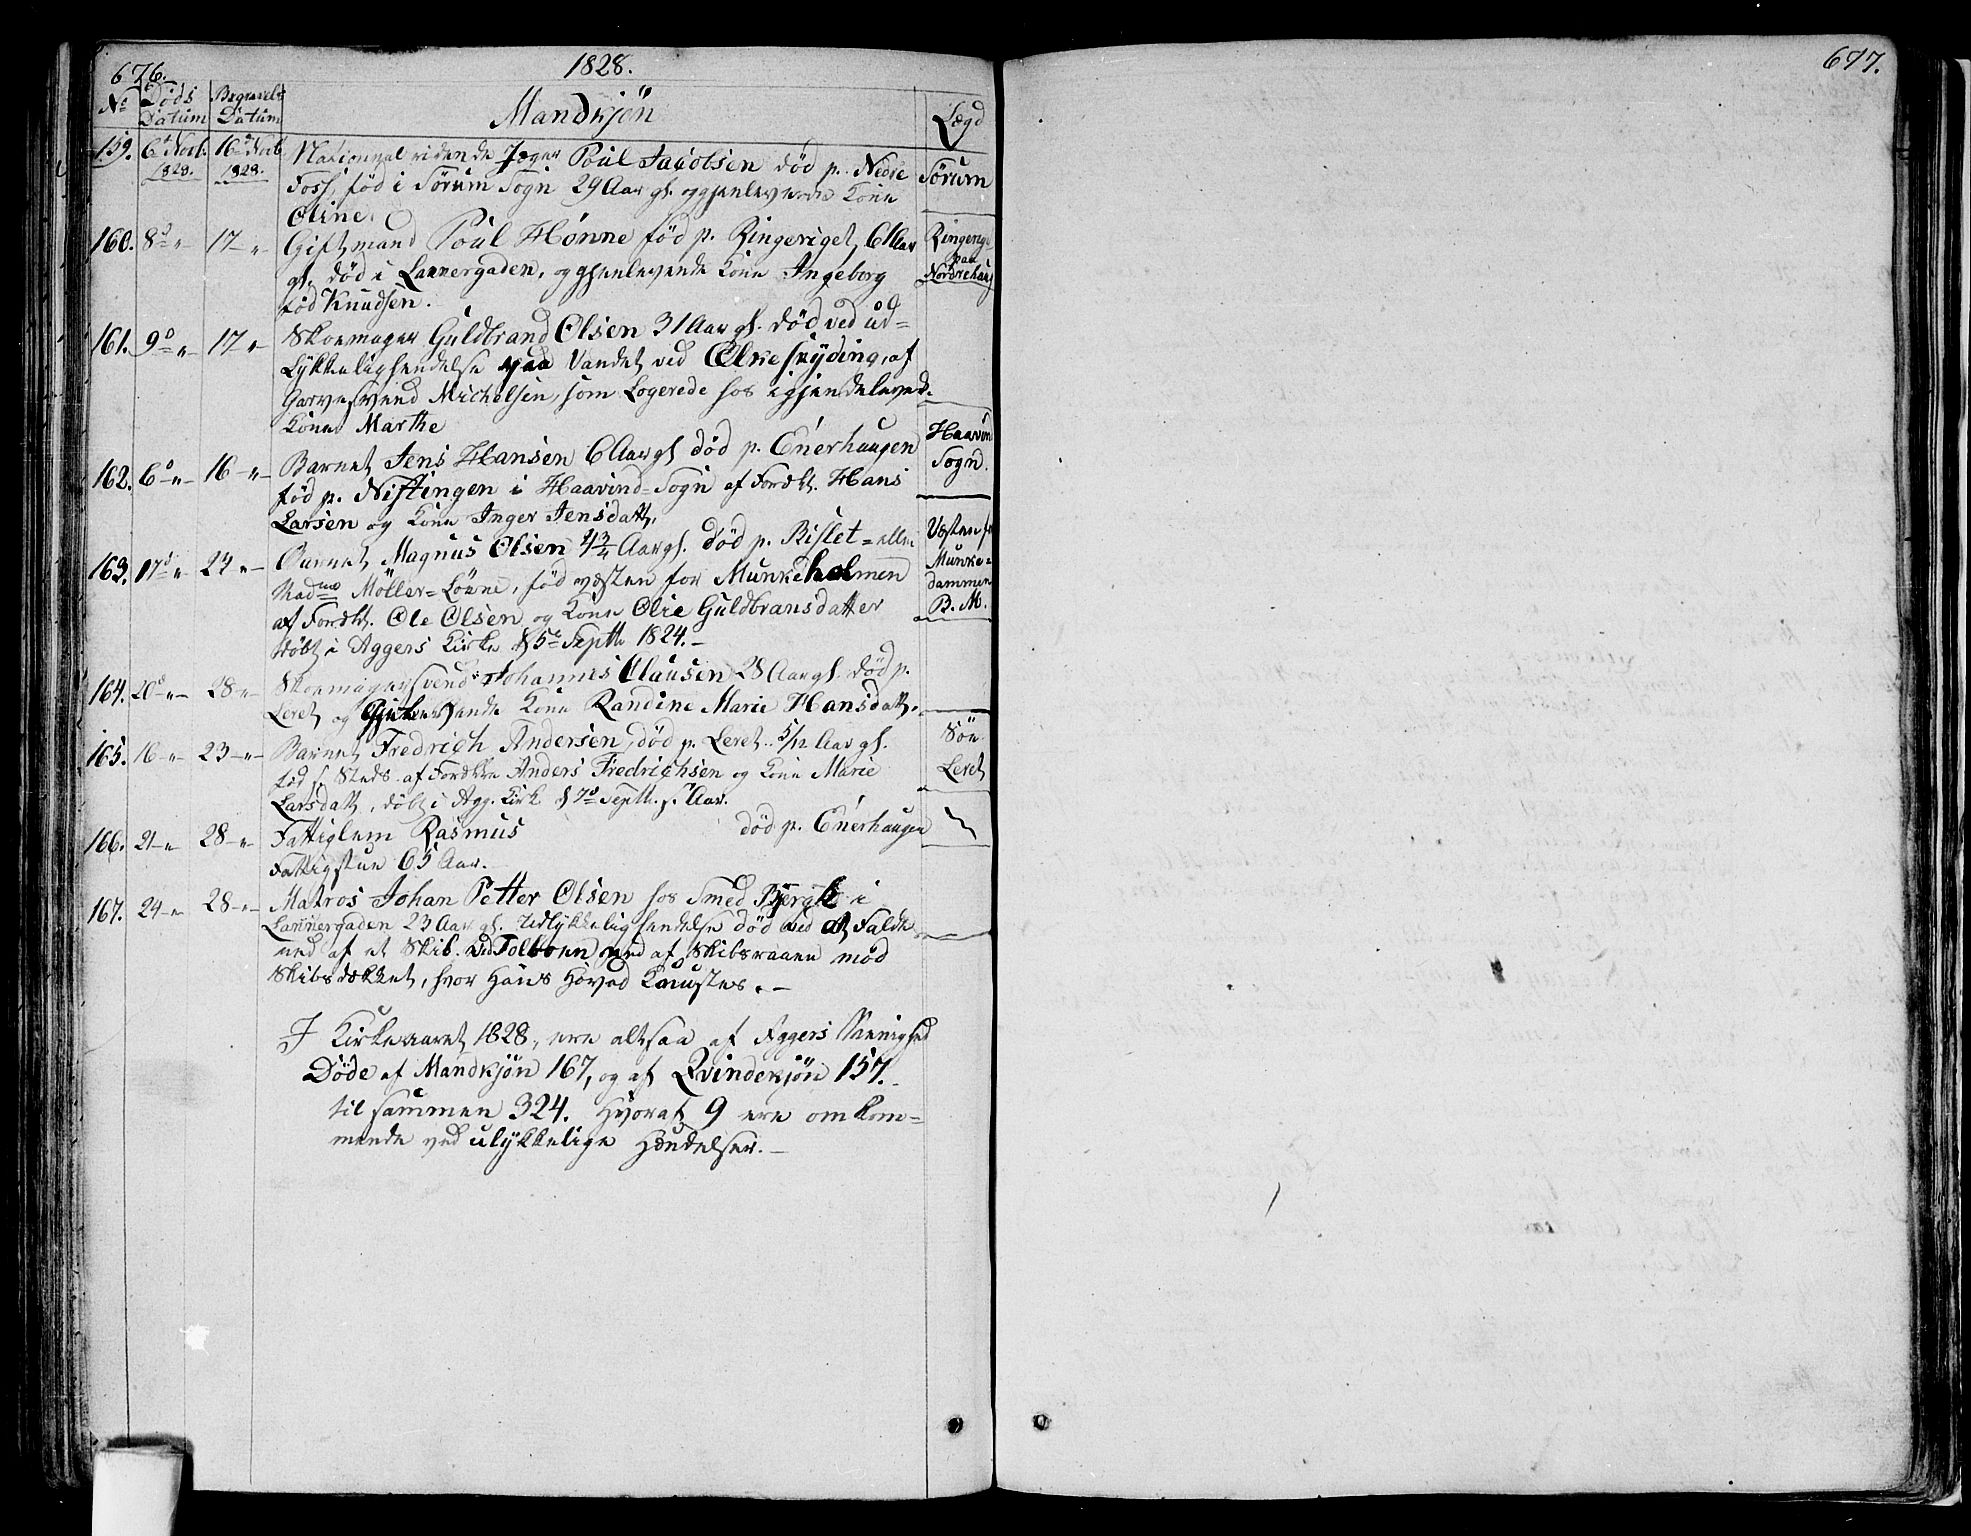 676.
1828.
No
Døds Datum
Begravels Datum
Mandkjön
Lægd
159. 6t Novb. 1828. 16de Novb. 1828. National ridende Jæger Poul Jacobsen død p. Nedre
Foss, född i Sörum Sogn 29 Aar gl. og gjenlevende Kone
Oline.
Sörum
160. 8d " 17 " Gift mand Poul Hønne fød p. Ringeriget, 61 Aar
gl. død i Lannergaden, og gjenlevende Kone Ingeborg
fød Knudsen.
Ringerige paa Nordrehaug
161. 9d " 17 " Skomager Guldbrand Olsen 31 Aar gl. död ved ud=
lykkelig hendelse paa Vandet ved af
Garversvend Michelsen, som Logerede hos igjendelevend.
Kone Marthe
162. 6d " 16 " Barnet Jens Hansen 6 Aar gl død p. Enerhaugen
fød p. Nistingen i Haavind=Sogn af Forældr. Hans
Larsen og Kone Inger Jensdatt.
Haavin Sogn.
163. 17d " 24 " Barnet Magnus Olsen 4 3/4 Aar gl. død p. Rislet=
Madme Möller=Lønne, fød vesten for Munkeholmen
af Forældr. Ole Olsen og Kone Olie Guldbransdatter
døbt i Aggers Kirke d 5te Septb 1824.-
Vesten f Munke= dammen B. M.
164. 20d " 28 " Skomagersvend Johannes Clausen 28 Aar gl. død p.
Leret og Gjenlevende Kone Randine Marie Hansdatt.
165. 16 " 23 " Barnet Fredrich Andersen, død p. Leret. 5/12 Aar gl.
fød s. Steds. af Forældre Anders Fredrichsen og Kone Marie
Larsdatt, döbt i Agg. Kirk d 7d Septb. s. Aar.
Leret
166. 21 " 28 " Fattiglem Rasmus død p. Enerhaugen
Fattigstue 65 Aar.
167. 24 " 28 " Matros Johan Petter Olsen hos Smed Bergh i
Lannergaden 23 Aar gl. Udlykkelig hendelse død ved at Falde
ned af et Skib. ved Tolboen ned af Skibsraaen mod
Skibsdækket, hvor Hans Hoved Knustes. -
I Kirkeaaret 1828, ere altsaa af Aggers Mennighed
Döde af Mandkjön 167, og af Qvindekjön 157.
til sammen 324. Hvoraf 9 ere omkom=
mende ved ulykkelige Hændelser. -
677.